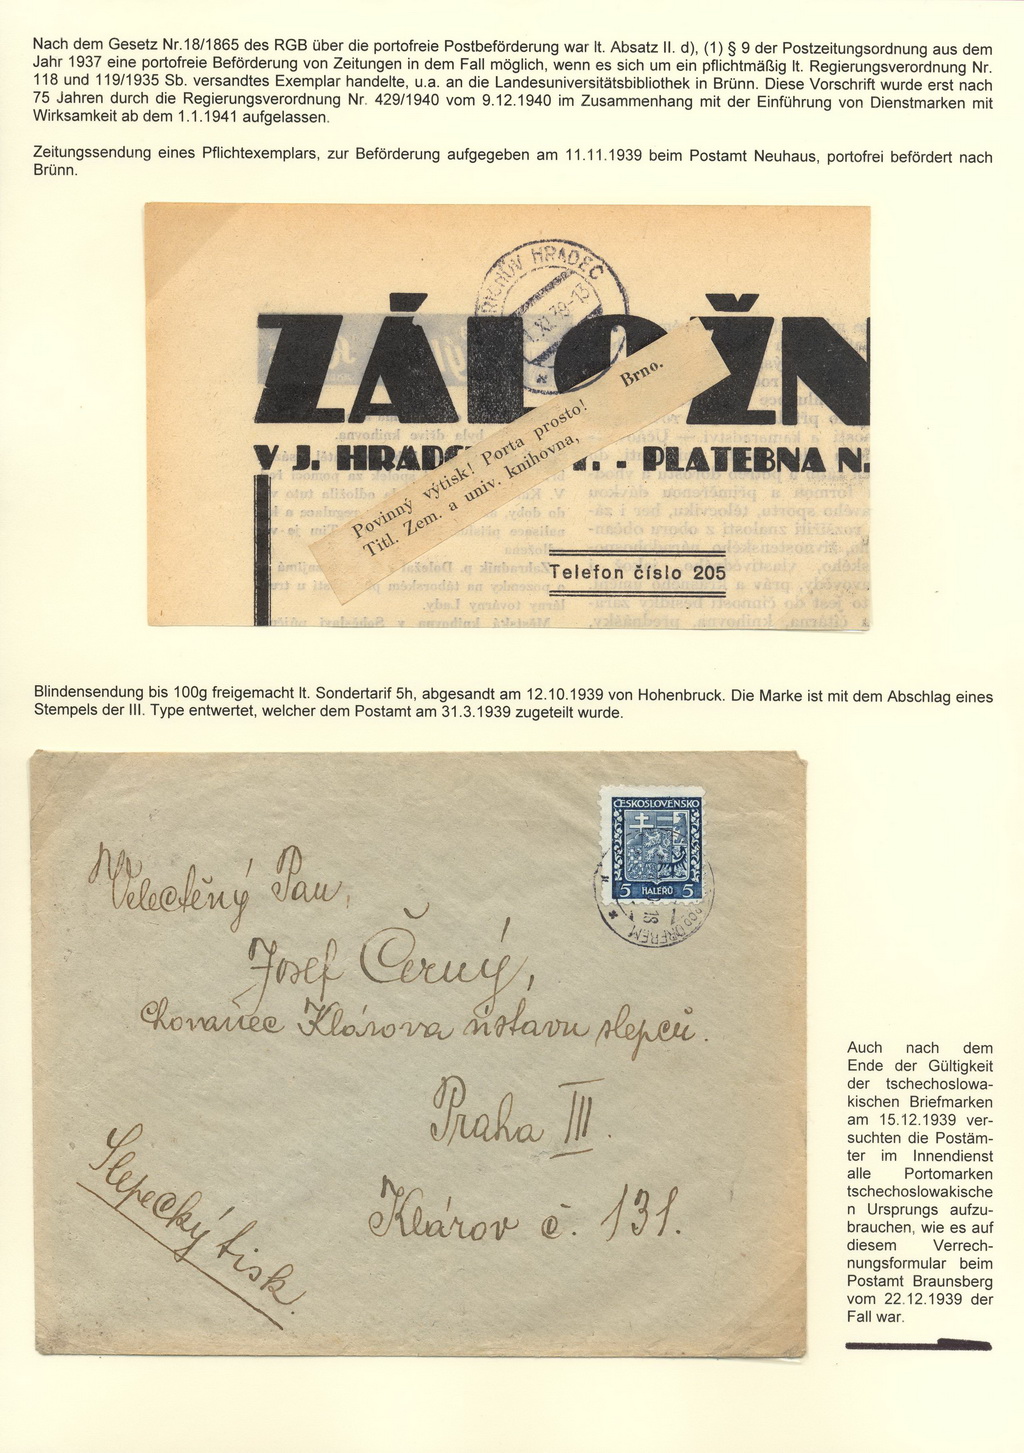 Nach dem Gesetz Nr.18/1865 des RGB über die portofreie Postbeförderung war lt. Absatz II. d), (1) § 9 der Postzeitungsordnung aus dem
Jahr 1937 eine portofreie Beförderung von Zeitungen in dem Fall möglich, wenn es sich um ein pflichtmäßig lt. Regierungsverordnung Nr.
118 und 119/1935 Sb. versandtes Exemplar handelte, u.a. an die Landesuniversitätsbibliothek in Brünn. Diese Vorschrift wurde erst nach
75 Jahren durch die Regierungsverordnung Nr. 429/1940 vom 9.12.1940 im Zusammenhang mit der Einführung von Dienstmarken mit
Wirksamkeit ab dem 1.1.1941 aufgelassen.
Zeitungssendung eines Pflichtexemplars, zur Beförderung aufgegeben am 11.11.1939 beim Postamt Neuhaus, portofrei befördert nach
Brünn.
HRADEC
ZÁLOŽN
V J. HRADC
- PLATEBNA N.
Povinný výtisk! Porta prosto!
Titl. Zem. a univ. knihovna,
Brno.
Telefon číslo 205
Blindensendung bis 100g freigemacht lt. Sondertarif 5h, abgesandt am 12.10.1939 von Hohenbruck. Die Marke ist mit dem Abschlag eines
Stempels der III. Type entwertet, welcher dem Postamt am 31.3.1939 zugeteilt wurde.
ČESKOSLOVENSKO
5 HALÉŘŮ 5
Velectěný Pan,
Josef Černý,
chovanec Klárova ústavu slepců.
Praha III.
Klárov č. 131.
Slepecký tisk.
Auch nach dem
Ende der Gültigkeit
der tschechoslowa-
kischen Briefmarken
am 15.12.1939 ver-
suchten die Postäm-
ter im Innendienst
alle Portomarken
tschechoslowakische
n Ursprungs aufzu-
brauchen, wie es auf
diesem Verrech-
nungsformular beim
Postamt Braunsberg
vom 22.12.1939 der
Fall war.